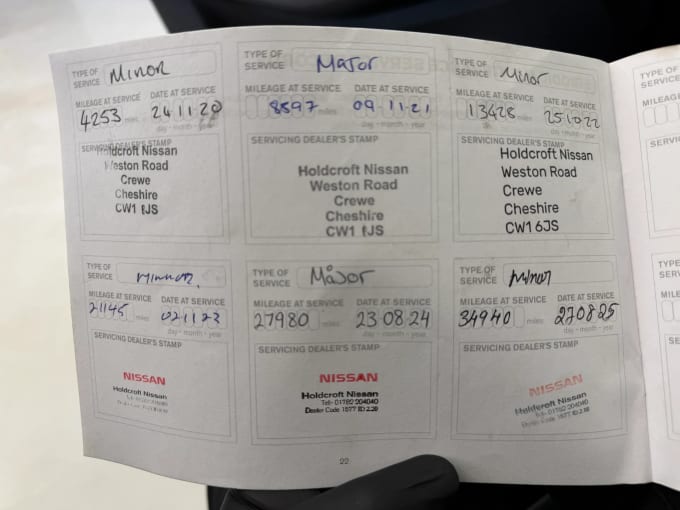 TYPE OF SERVICE Minor
MILEAGE AT SERVICE DATE AT SERVICE
4253 miles 24 11 20
day - month - year
SERVICING DEALER'S STAMP
Holdcroft Nissan
Weston Road
Crewe
Cheshire
CW1 6JS
TYPE OF SERVICE Major
MILEAGE AT SERVICE DATE AT SERVICE
8597 miles 09 11 21
day - month - year
SERVICING DEALER'S STAMP
Holdcroft Nissan
Weston Road
Crewe
Cheshire
CW1 6JS
TYPE OF SERVICE Minor
MILEAGE AT SERVICE DATE AT SERVICE
13428 25 10 22
day - month - year
SERVICING DEALER'S STAMP
Holdcroft Nissan
Weston Road
Crewe
Cheshire
CW1 6JS
TYPE OF SERVICE
MILEAGE AT SERVICE DATE AT SERVICE
21145 miles 02 11 23
day - month - year
SERVICING DEALER'S STAMP
NISSAN
Holdcroft Nissan
TYPE OF SERVICE Major
MILEAGE AT SERVICE DATE AT SERVICE
27980 miles 23 08 24
day - month - year
SERVICING DEALER'S STAMP
NISSAN
Holdcroft Nissan
Tel:- 01782 204040
Dealer Code 1577 ID 2.38
TYPE OF SERVICE Minor
MILEAGE AT SERVICE DATE AT SERVICE
34940 miles 27 08 25
day - month - year
SERVICING DEALER'S STAMP
NISSAN
Holdcroft Nissan
Tel:- 01782 204040
Dealer Code 1577 ID 2.38
22
TYPE OF
SERVICE
MILEAGE
SERVICI
TYPE OF
SERVICE
MILEAG
SERVIC